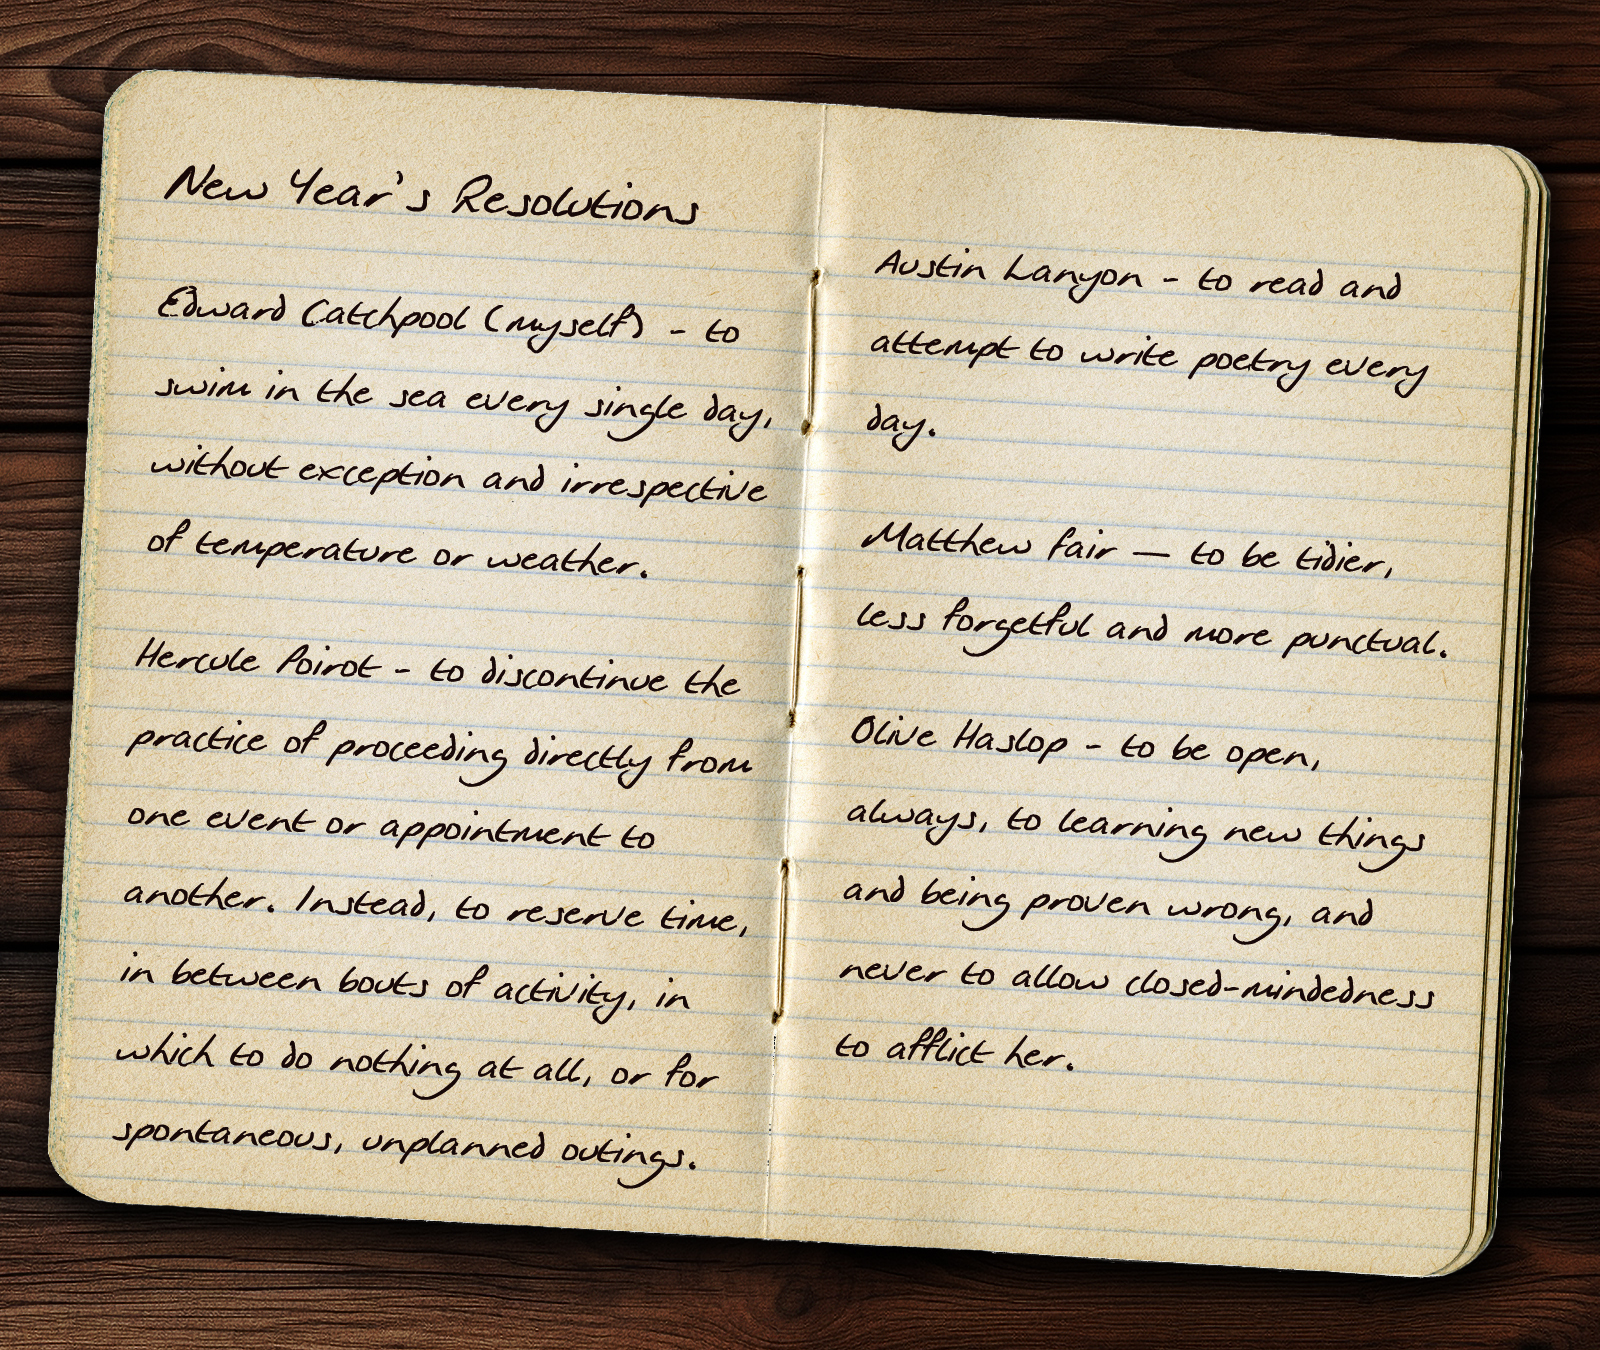 New Year's Resolutions
Edward Catchpool (myself) - to
swim in the sea every single day,
without exception and irrespective
of temperature or weather.
Hercule Poirot - to discontinue the
practice of proceeding directly from
one event or appointment to
another. Instead, to reserve time,
in between bouts of activity, in
which to do nothing at all, or for
spontaneous, unplanned outings.
Austin Lanyon - to read and
attempt to write poetry every
day.
Matthew Fair — to be tidier,
less forgetful and more punctual.
Olive Haslop - to be open,
always, to learning new things
and being proven wrong, and
never to allow closed-mindedness
to afflict her.